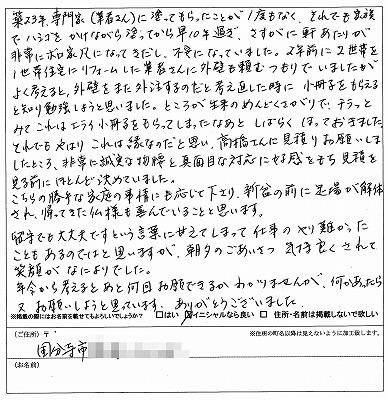 築23年、専門家(業者さん)に塗ってもらったことが1度もなく、それでも家族
でハシゴをかけながら塗ってから早10年過ぎ、さすがに軒あたりが
非常にボロ家風になってきだし、不安になっていました。2年前に2世帯を
1世帯住宅にリフォームした業者さんに外壁も頼むつもりでいましたが
よく考えると、外壁をまた外注するのだと考え直した時に小冊子をもらえる
と知り勉強しようと思いました。ところが生来のめんどくさがりで、チラっと
みてこれはエライ小冊子をもらってしまったなあとしばらくほっておきました。
それでもやはりこれは縁なのだと思い、高橋さんに見積りお願いしま
したところ、非常に誠実な物腰と真面目な対応に好感をもち見積を
見る前にほとんど決めていました。
こちらの勝手な家庭の事情にも応じて下さり、新盆の前に足場が解体
され、帰ってきた仏様も喜んでいることと思います。
留守でも大丈夫ですという言葉に甘えてしまって仕事のやり難かった
こともあるのではと思いますが、朝夕のごあいさつ気持良くされて
笑顔がなによりでした。
年令から考えるとあと何回お願できるかわかりませんが、何かあったら
又お願いしようと思っています。ありがとうございました。
※掲載の際にはお名前を載せてもよろしいでしょうか? □はい ☑イニシャルなら良い □住所・名前は掲載しないで欲しい
(ご住所)〒 ※住所の町名以降は見えないように加工致します。
国分寺市
(お名前)